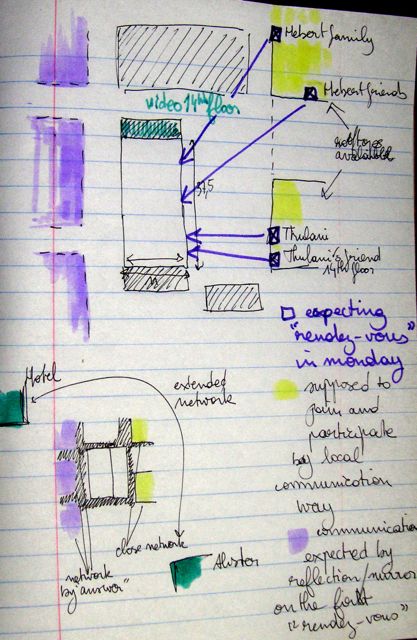 Hebert family
Hebert friends
video 14th floor
rooftops
available
37,5
Thulani
Thulani's friend
14th floor
expecting
"rendez-vous"
in monday
Hotel
extended
network
supposed to
join and
participate
by local
communication
way
close network
network
by "answer"
Alistor
communication
expected by
reflection/mirror
on the first
"rendez-vous"